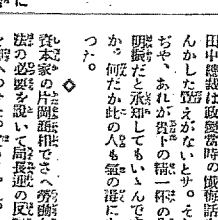 田中總裁は政變當時の
んかした覺えがないとサ、そ
ぢや、あれが貴下の精一杯の
明振だと承知してもいゝんで
か。何だか此の人も氣の毒に
つた。
◇
資本家の片岡直温でさへ勞働
法の必要を說いて局長連の反